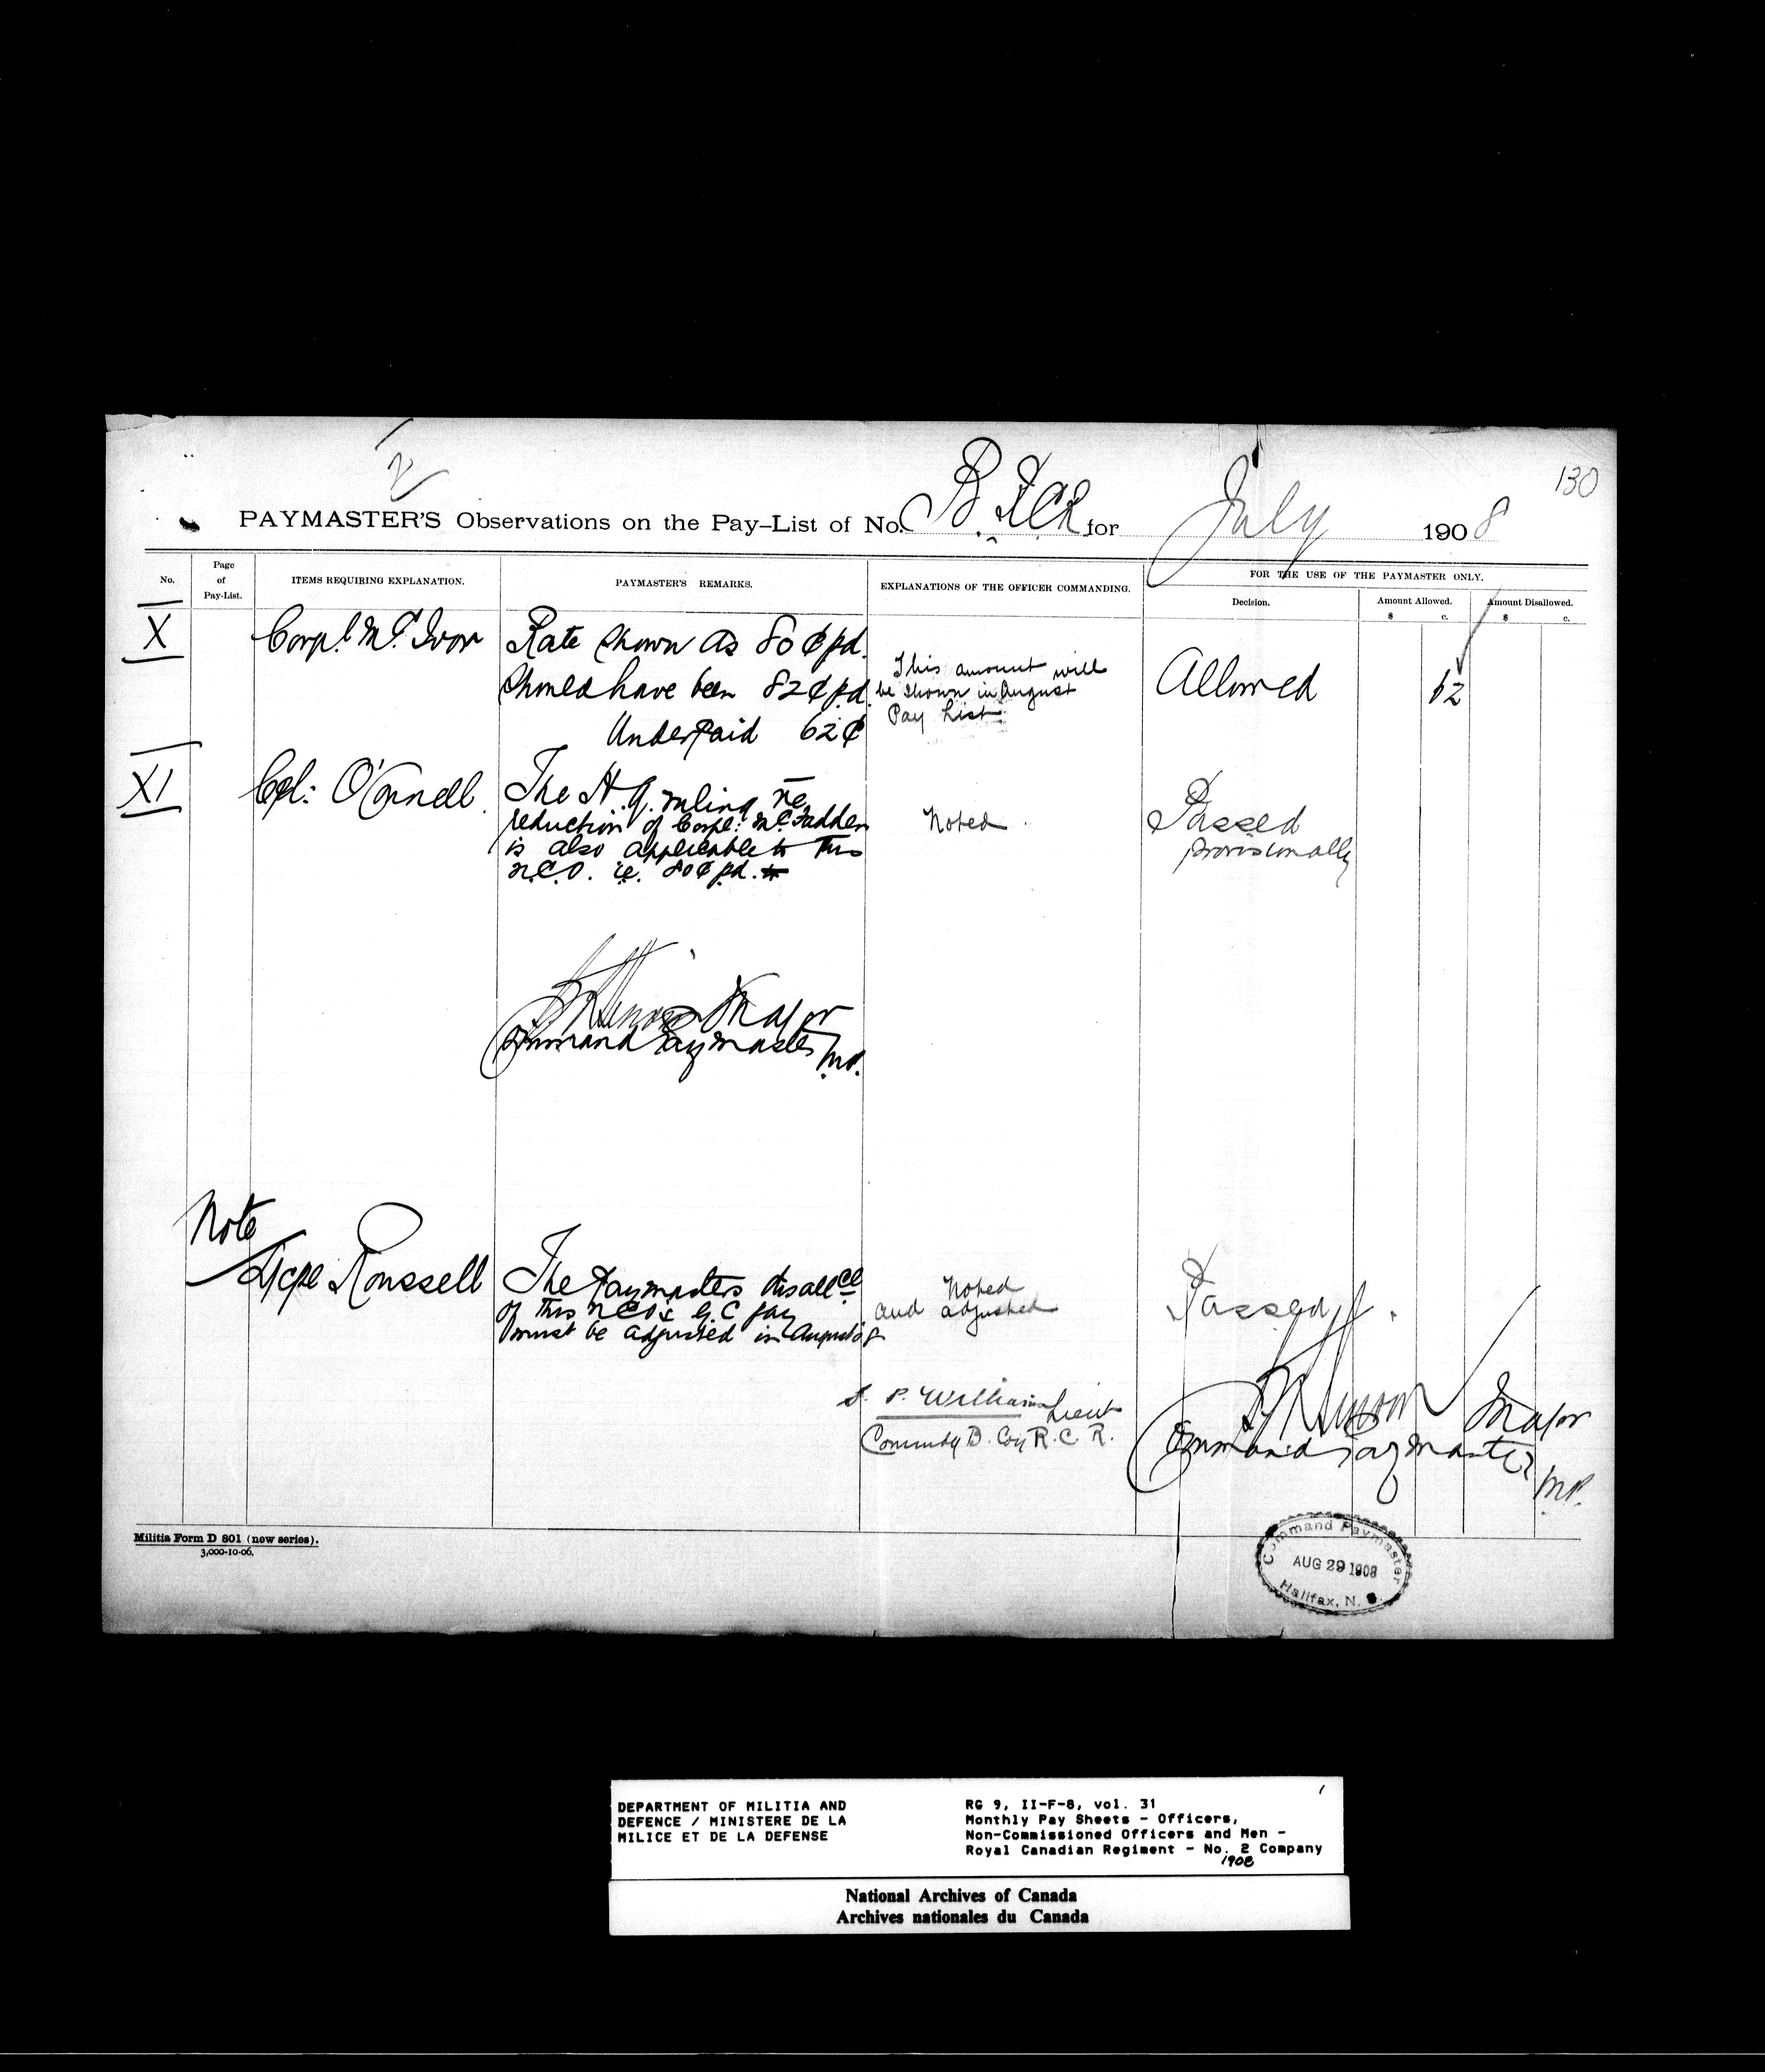 2
130
PAYMASTER'S Observations on the Pay-List of No. B RCR for July 1908
No.
Page
of
Pay-List.
ITEMS REQUIRING EXPLANATION.
PAYMASTER'S REMARKS.
EXPLANATIONS OF THE OFFICER COMMANDING.
FOR THE USE OF THE PAYMASTER ONLY.
Decision.
Amount Allowed.
$ c.
Amount Disallowed.
$ c.
X
Corpl McIvor
Rate shown as 80¢ pd.
Should have been 82¢ p.d.
Underpaid 62¢
This amount will
be shown in August
Pay List
Allowed
62
XI
Cpl: O'Connell
The H.Q. ruling re
reduction of Corpl: McFadden
is also applicable to this
N.C.O. i.e. 80¢ pd.
Noted
Passed
provisionally
Major
Command Paymaster
MP.
Note
L/Cpl Roussell
The Paymasters disallce
of this NCO's G.C pay
must be adjusted in August
Noted
and adjusted
Passed
P. Williams Lieut
Commdg B. Coy R.C.R.
Major
Command Paymaster
MP.
Militia Form D 801 (new series).
3,000-10-06.
Command Paymaster
AUG 29 1908
Halifax, N. S.
DEPARTMENT OF MILITIA AND
DEFENCE / MINISTERE DE LA
MILICE ET DE LA DEFENSE
RG 9, II-F-8, vol. 31
Monthly Pay Sheets - Officers,
Non-Commissioned Officers and Men -
Royal Canadian Regiment - No. 2 Company
1908
National Archives of Canada
Archives nationales du Canada